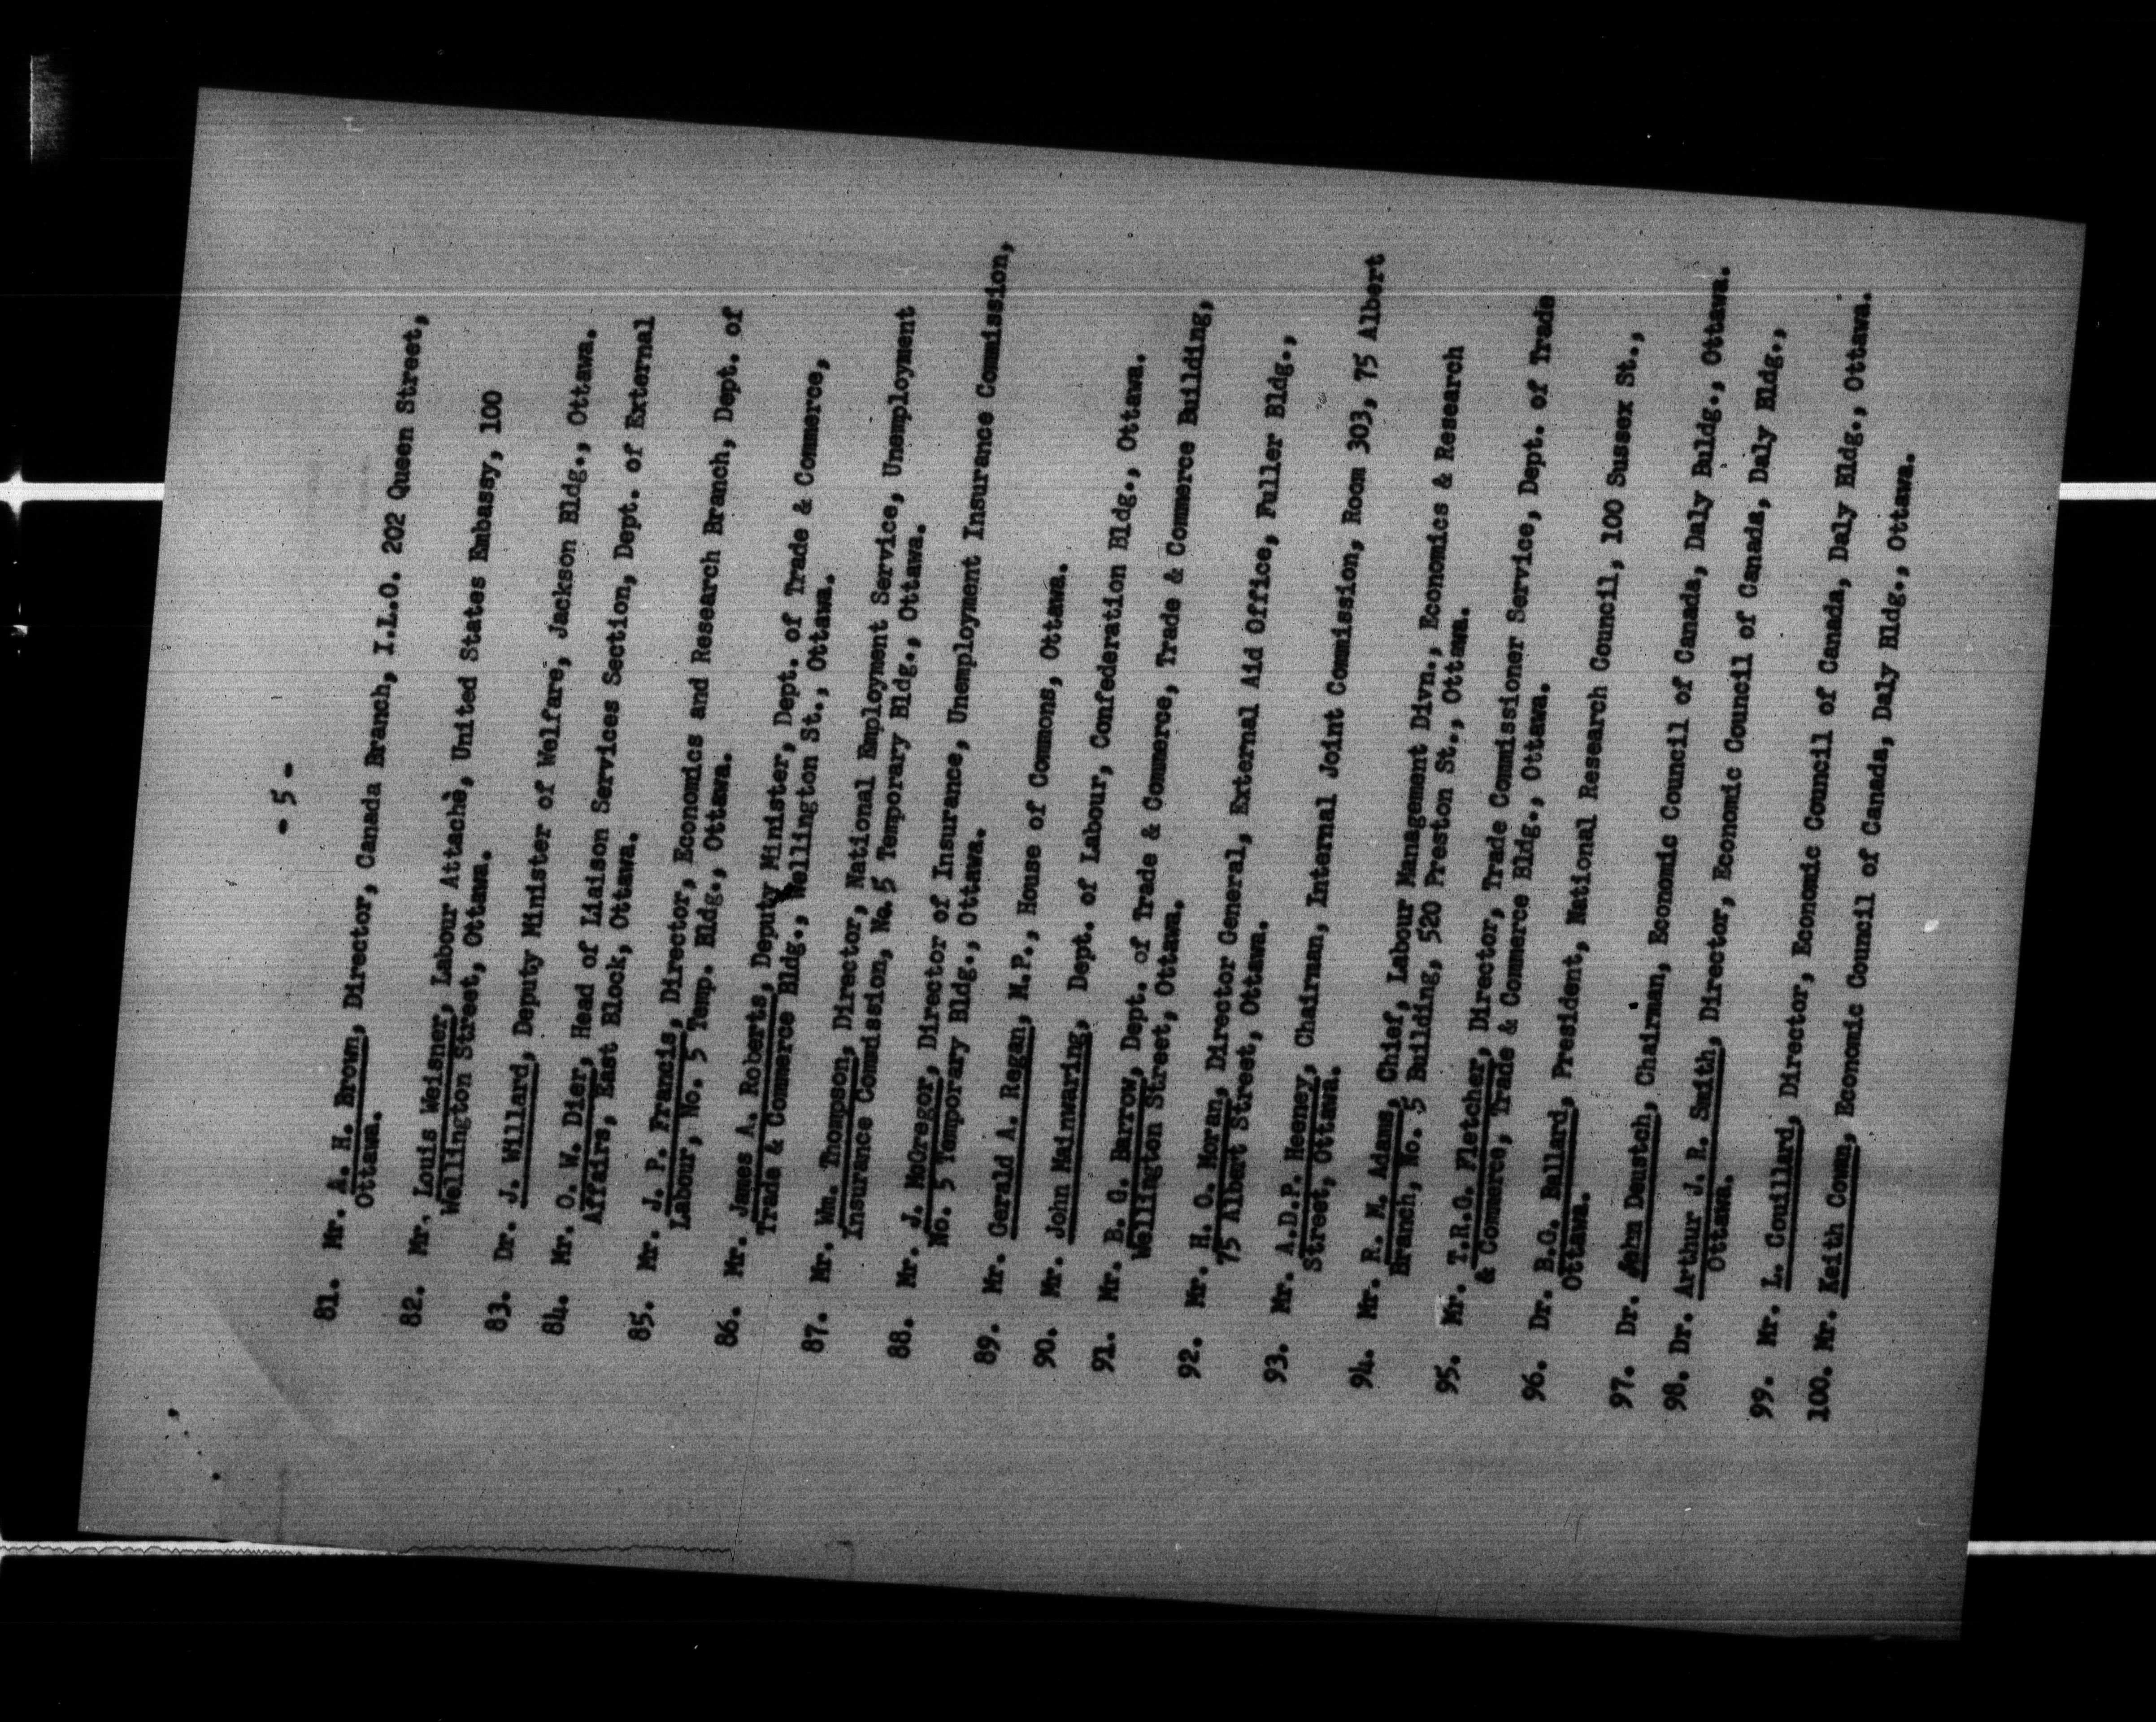 - 5 -
81. Mr. A. H. Brown, Director, Canada Branch, I.L.O. 202 Queen Street,
Ottawa.
82. Mr. Louis Weisner, Labour Attachè, United States Embassy, 100
Wellington Street, Ottawa.
83. Dr. J. Willard, Deputy Minister of Welfare, Jackson Bldg., Ottawa.
84. Mr. O. W. Dier, Head of Liaison Services Section, Dept. of External
Affairs, East Block, Ottawa.
85. Mr. J. P. Francis, Director, Economics and Research Branch, Dept. of
Labour, No. 5 Temp. Bldg., Ottawa.
86. Mr. James A. Roberts, Deputy Minister, Dept. of Trade & Commerce,
Trade & Commerce Bldg., Wellington St., Ottawa.
87. Mr. Wm. Thompson, Director, National Employment Service, Unemployment
Insurance Commission, No. 5 Temporary Bldg., Ottawa.
88. Mr. J. McGregor, Director of Insurance, Unemployment Insurance Commission,
No. 5 Temporary Bldg., Ottawa.
89. Mr. Gerald A. Regan, M.P., House of Commons, Ottawa.
90. Mr. John Mainwaring, Dept. of Labour, Confederation Bldg., Ottawa.
91. Mr. B. G. Barrow, Dept. of Trade & Commerce, Trade & Commerce Building,
Wellington Street, Ottawa.
92. Mr. H. O. Moran, Director General, External Aid Office, Fuller Bldg.,
75 Albert Street, Ottawa.
93. Mr. A.D.P. Heeney, Chairman, Internal Joint Commission, Room 303, 75 Albert
Street, Ottawa.
94. Mr. R. M. Adams, Chief, Labour Management Divn., Economics & Research
Branch, No. 5 Building, 520 Preston St., Ottawa.
95. Mr. T.R.G. Fletcher, Director, Trade Commissioner Service, Dept. of Trade
& Commerce, Trade & Commerce Bldg., Ottawa.
96. Dr. B.G. Ballard, President, National Research Council, 100 Sussex St.,
Ottawa.
97. Dr. John Deustch, Chairman, Economic Council of Canada, Daly Buldg., Ottawa.
98. Dr. Arthur J. R. Smith, Director, Economic Council of Canada, Daly Bldg.,
Ottawa.
99. Mr. L. Couillard, Director, Economic Council of Canada, Daly Bldg., Ottawa.
100. Mr. Keith Cowan, Economic Council of Canada, Daly Bldg., Ottawa.